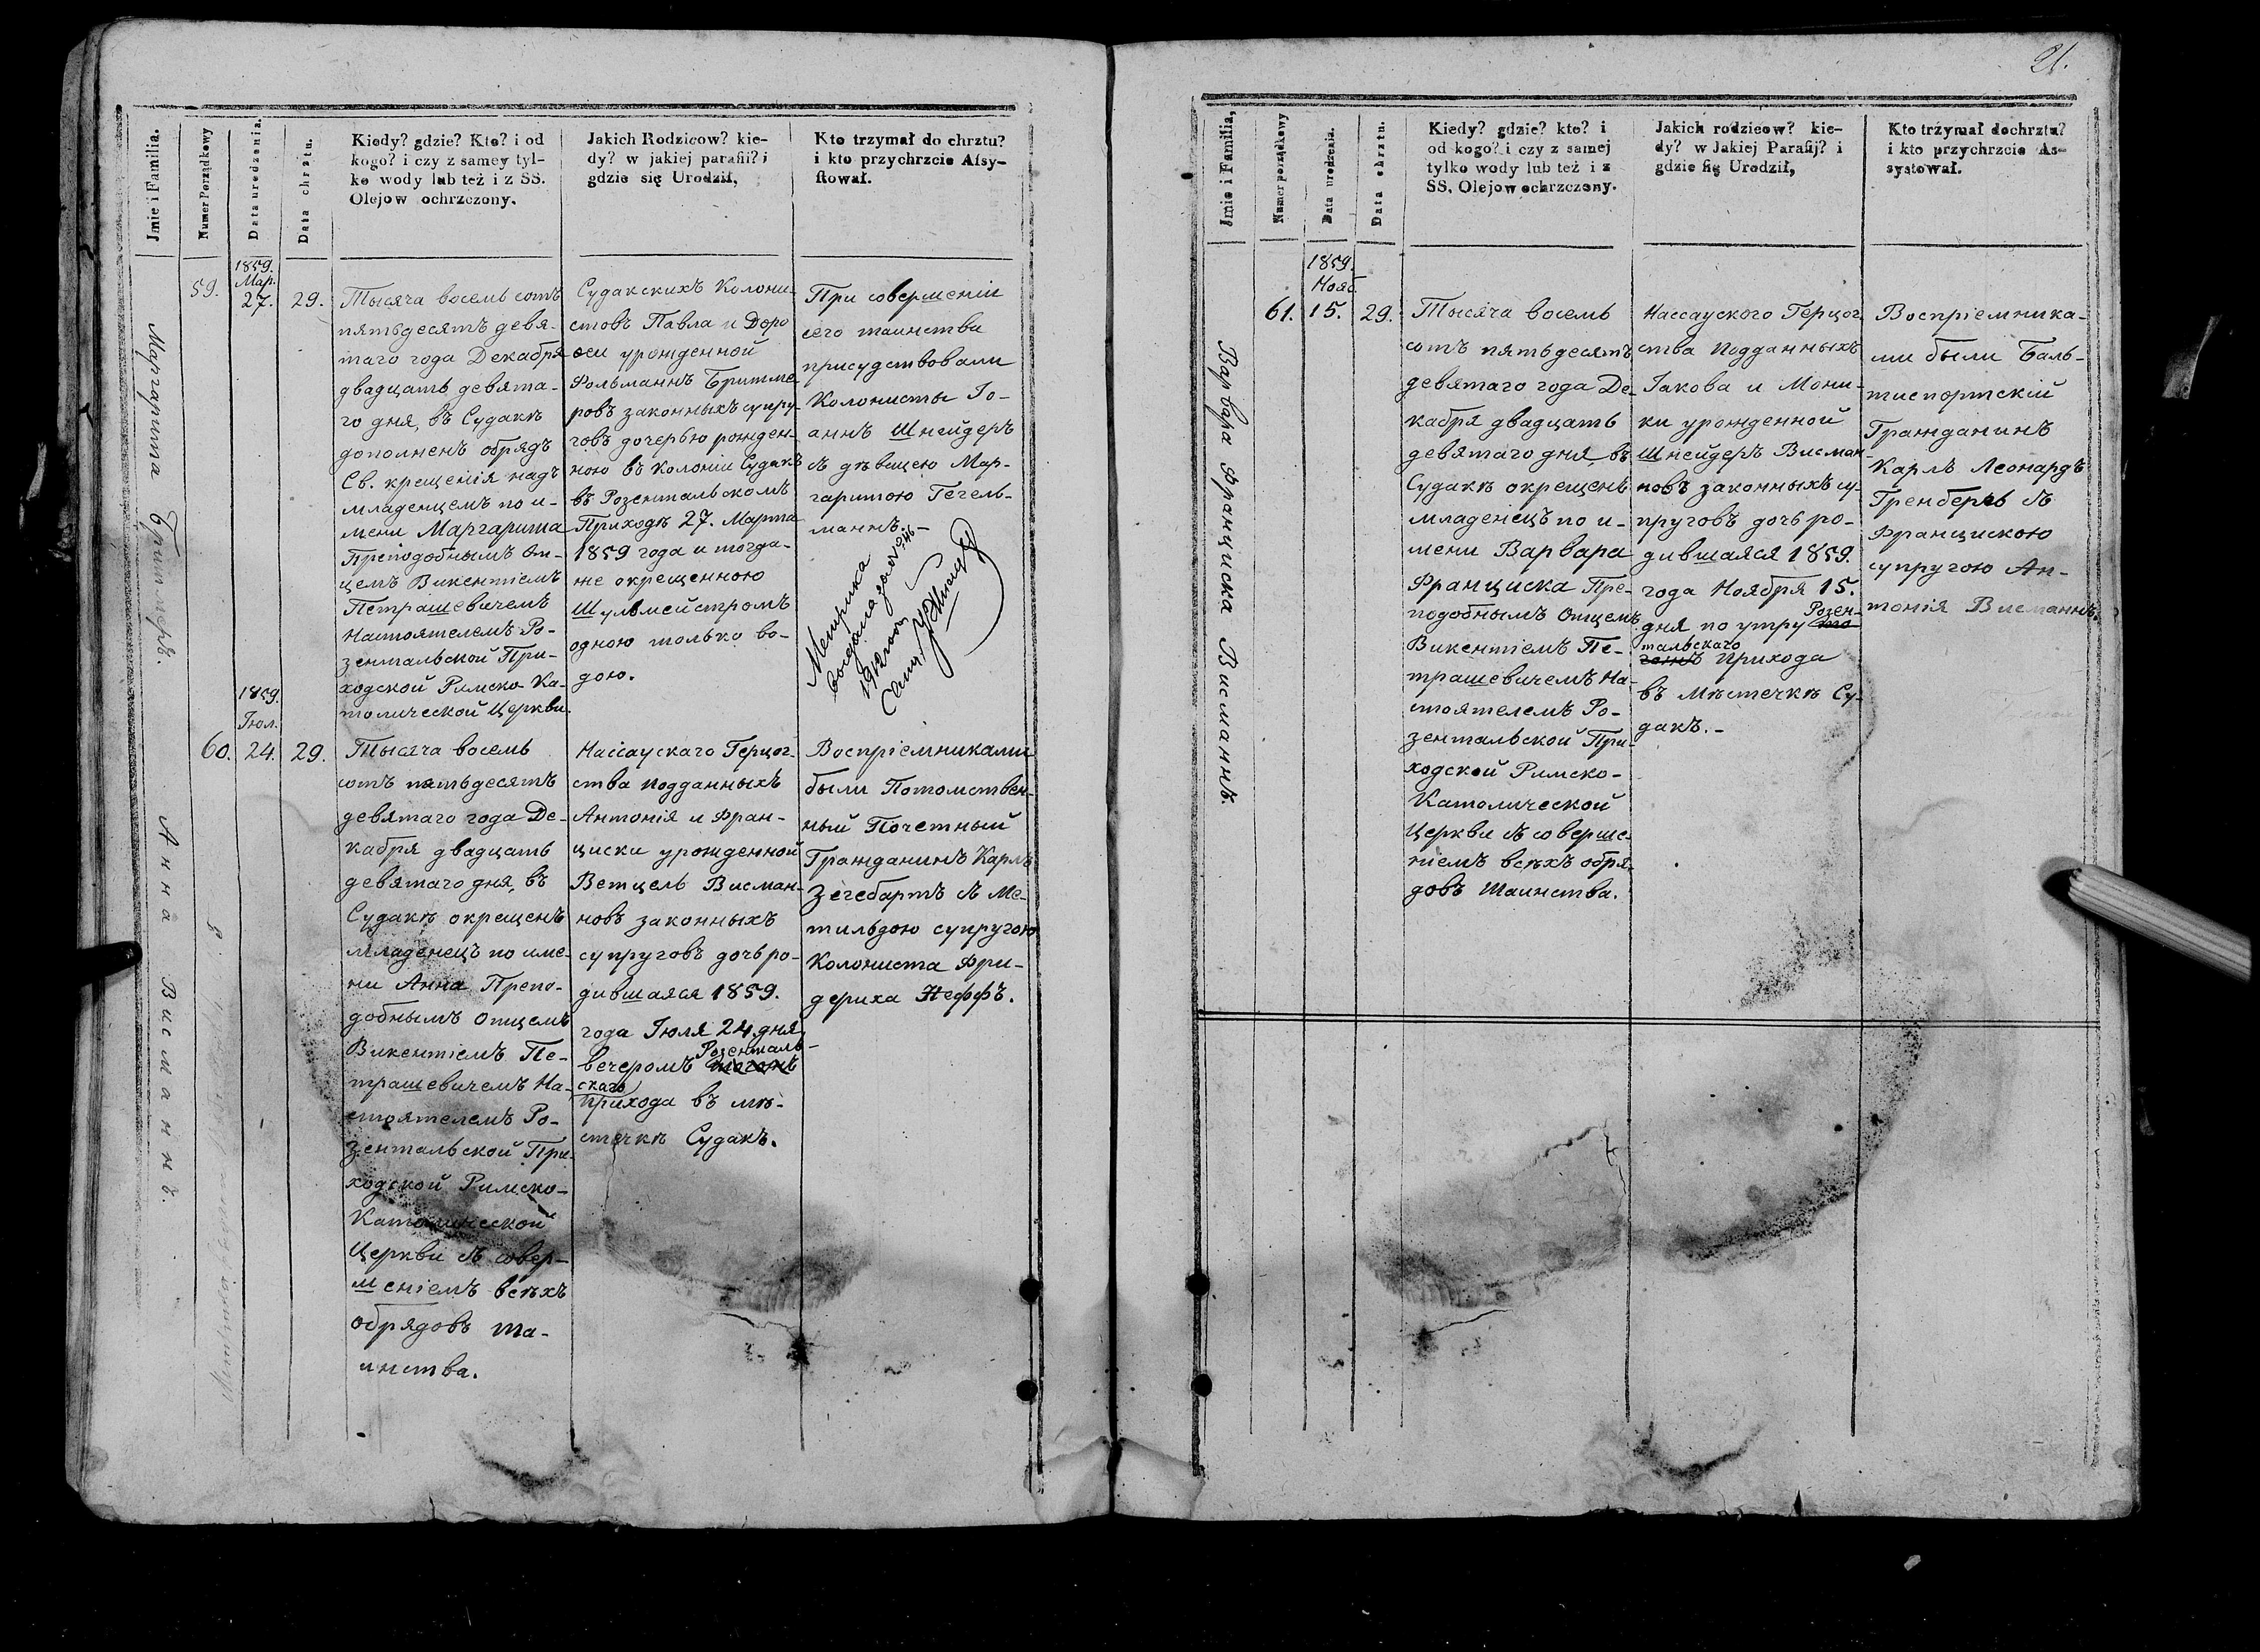 21.
Jmie i Familia.
Numer Porządkowy
Data urodzenia.
Data chrztu.
Kiedy? gdzie? Kto? i od
kogo? i czy z samey tyl-
ko wody lub też i z SS.
Olejow ochrzczony.
Jakich Rodzicow? kie-
dy? w jakiej parafii? i
gdzie się Urodził,
Kto trzymał do chrztu?
i kto przychrzcie Afsy-
ftował.
Маргарита Бритмеръ.
59.
1859.
Мар.
27.
29.
Тысяча восемь сотъ
пятьдесятъ девя-
таго года Декабря
двадцать девята-
го дня, въ Судакѣ
дополненъ обрядъ
Св. крещенія надъ
младенцемъ по и-
мени Маргарита
Преподобнымъ От-
цемъ Викентіемъ
Петрашевичемъ
Настоятелемъ Ро-
зентальской При-
ходской Римско-Ка-
толической Церкви.
Судакскихъ Колони-
стовъ Павла и Доро
ѳеи урожденной
Фольманнъ Бритме-
ровъ законныхъ супру-
говъ дочерью рожден-
ною въ колоніи Судакъ
въ Розентальскомъ
Приходѣ 27. Марта
1859 года и тогда-
же окрещенною
Шульмейстромъ
одною только во-
дою.
При совершеніи
сего таинства
присудствовали
Колонисты Іо-
аннъ Шнейдеръ
съ дѣвицею Мар-
гаритою Гегель-
маннъ.-
Метрика
выдана за №
1912
Анна Висманнъ.
60.
1859.
Іюл.
24.
29.
Тысяча восемь
сотъ пятьдесятъ
девятаго года Де-
кабря двадцать
девятаго дня, въ
Судакѣ окрещенъ
младенецъ по име-
ни Анна Препо-
добнымъ Отцемъ
Викентіемъ Пе-
трашевичемъ На-
стоятелемъ Ро-
зентальской При-
ходской Римско-
Католической
Церкви съ совер-
шеніемъ всѣхъ
обрядовъ та-
инства.
Нассаускаго Герцог-
ства подданныхъ
Антонія и Фран-
циски урожденной
Ветцель Висман-
новъ законныхъ
супруговъ дочь ро-
дившаяся 1859.
года Іюля 24. дня
вечеромъ Розенталь-
скаго
прихода въ мѣ-
стечкѣ Судакъ.
Воспріемниками
были Потомствен-
ный Почетный
Гражданинъ Карлъ
Зегебартъ съ Ме-
тильдою супругою
Колониста Фри-
дериха Неффъ.
Jmie i Familia,
Numer porządkowy
Data urodzenia.
Data chrztu.
Kiedy? gdzie? kto? i
od kogo? i czy z samej
tylko wody lub też i z
SS. Olejow ochrzczony.
Jakich rodzicow? kie-
dy? w Jakiej Parafij? i
gdzie fię Urodził,
Kto trzymał dochrztu?
i kto przychrzcie As-
systował.
Варвара Франциска Висманнъ.
61.
1859.
Нояб.
15.
29.
Тысяча восемь
сотъ пятьдесятъ
девятаго года Де-
кабря двадцать
девятаго дня, въ
Судакѣ окрещенъ
младенецъ по и-
мени Варвара
Франциска Пре-
подобнымъ Отцемъ
Викентіемъ Пе-
трашевичемъ На-
стоятелемъ Ро-
зентальской При-
ходской Римско-
Католической
Церкви съ соверше-
ніемъ всѣхъ обря-
довъ таинства.
Нассауского Герцог-
ства подданныхъ
Іакова и Мони-
ки урожденной
Шнейдеръ Висман-
новъ законныхъ су-
пруговъ дочь ро-
дившаяся 1859.
года Ноября 15.
дня по утру Розен-
тальскаго
прихода
въ мѣстечкѣ Су-
дакъ.-
Воспріемника-
ми были Баль-
тиспортскій
Гражданинъ
Карлъ Леонардъ
Гренбергъ съ
Францискою
супругою Ан-
тонія Висманнъ.